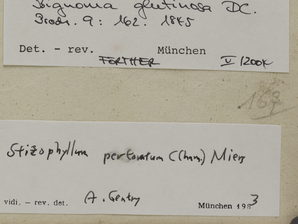 Bignonia glutinosa DC.
Prodr. 9: 162. 1845
Det. - rev. FORTHER München V/2002
169
Stizophyllum perforatum (Cham.) Miers
vidi. - rev. det. A. Gentry München 1983